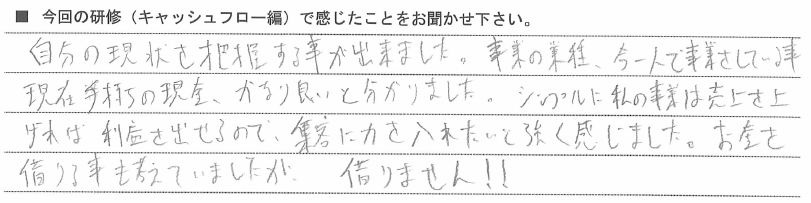 ■ 今回の研修（キャッシュフロー編）で感じたことをお聞かせ下さい。
自分の現状を把握する事が出来ました。事業の業種、今一人で事業をしている事
現在手持ちの現金、かなり良いと分かりました。シンプルに私の事業は売上を上
げれば利益を出せるので、集客に力を入れたいと強く感じました。お金を
借りる事も考えていましたが、借りません!!